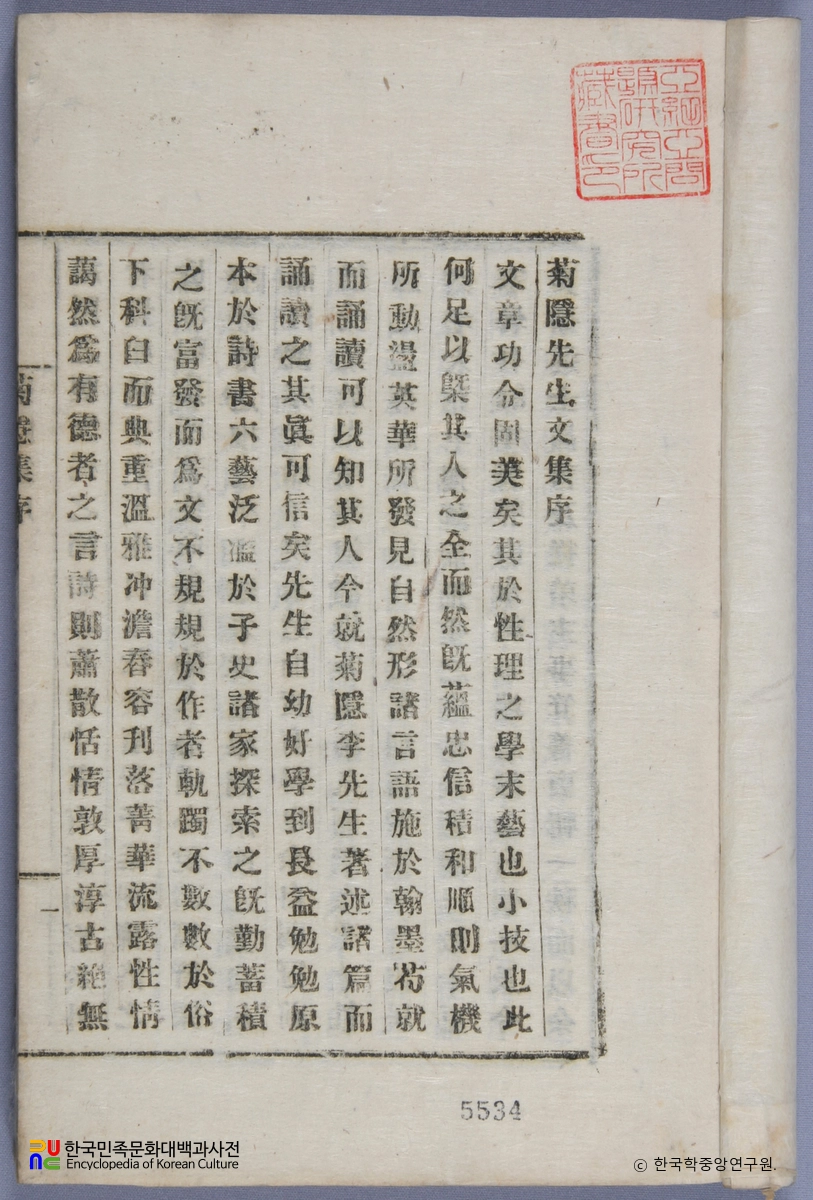 菊隱先生文集序
文章功令固美矣其於性理之學末藝也小技也此
何足以槩其人之全而然旣蘊忠信積和順則氣機
所動盪英華所發見自然形諸言語施於翰墨苟就
而誦讀可以知其人今就菊隱李先生著述諸篇而
誦讀之其眞可信矣先生自幼好學到長益勉勉原
本於詩書六藝泛濫於子史諸家探索之旣勤蓄積
之旣富發而爲文不規規於作者軌躅不數數於俗
下科臼而典重溫雅冲澹舂容刋落菁華流露性情
藹然爲有德者之言詩則蕭散恬情敦厚淳古絶無
菊隱集序
一
亞細亞問
題硏究所
藏書印
5534
한국민족문화대백과사전
Encyclopedia of Korean Culture
© 한국학중앙연구원.